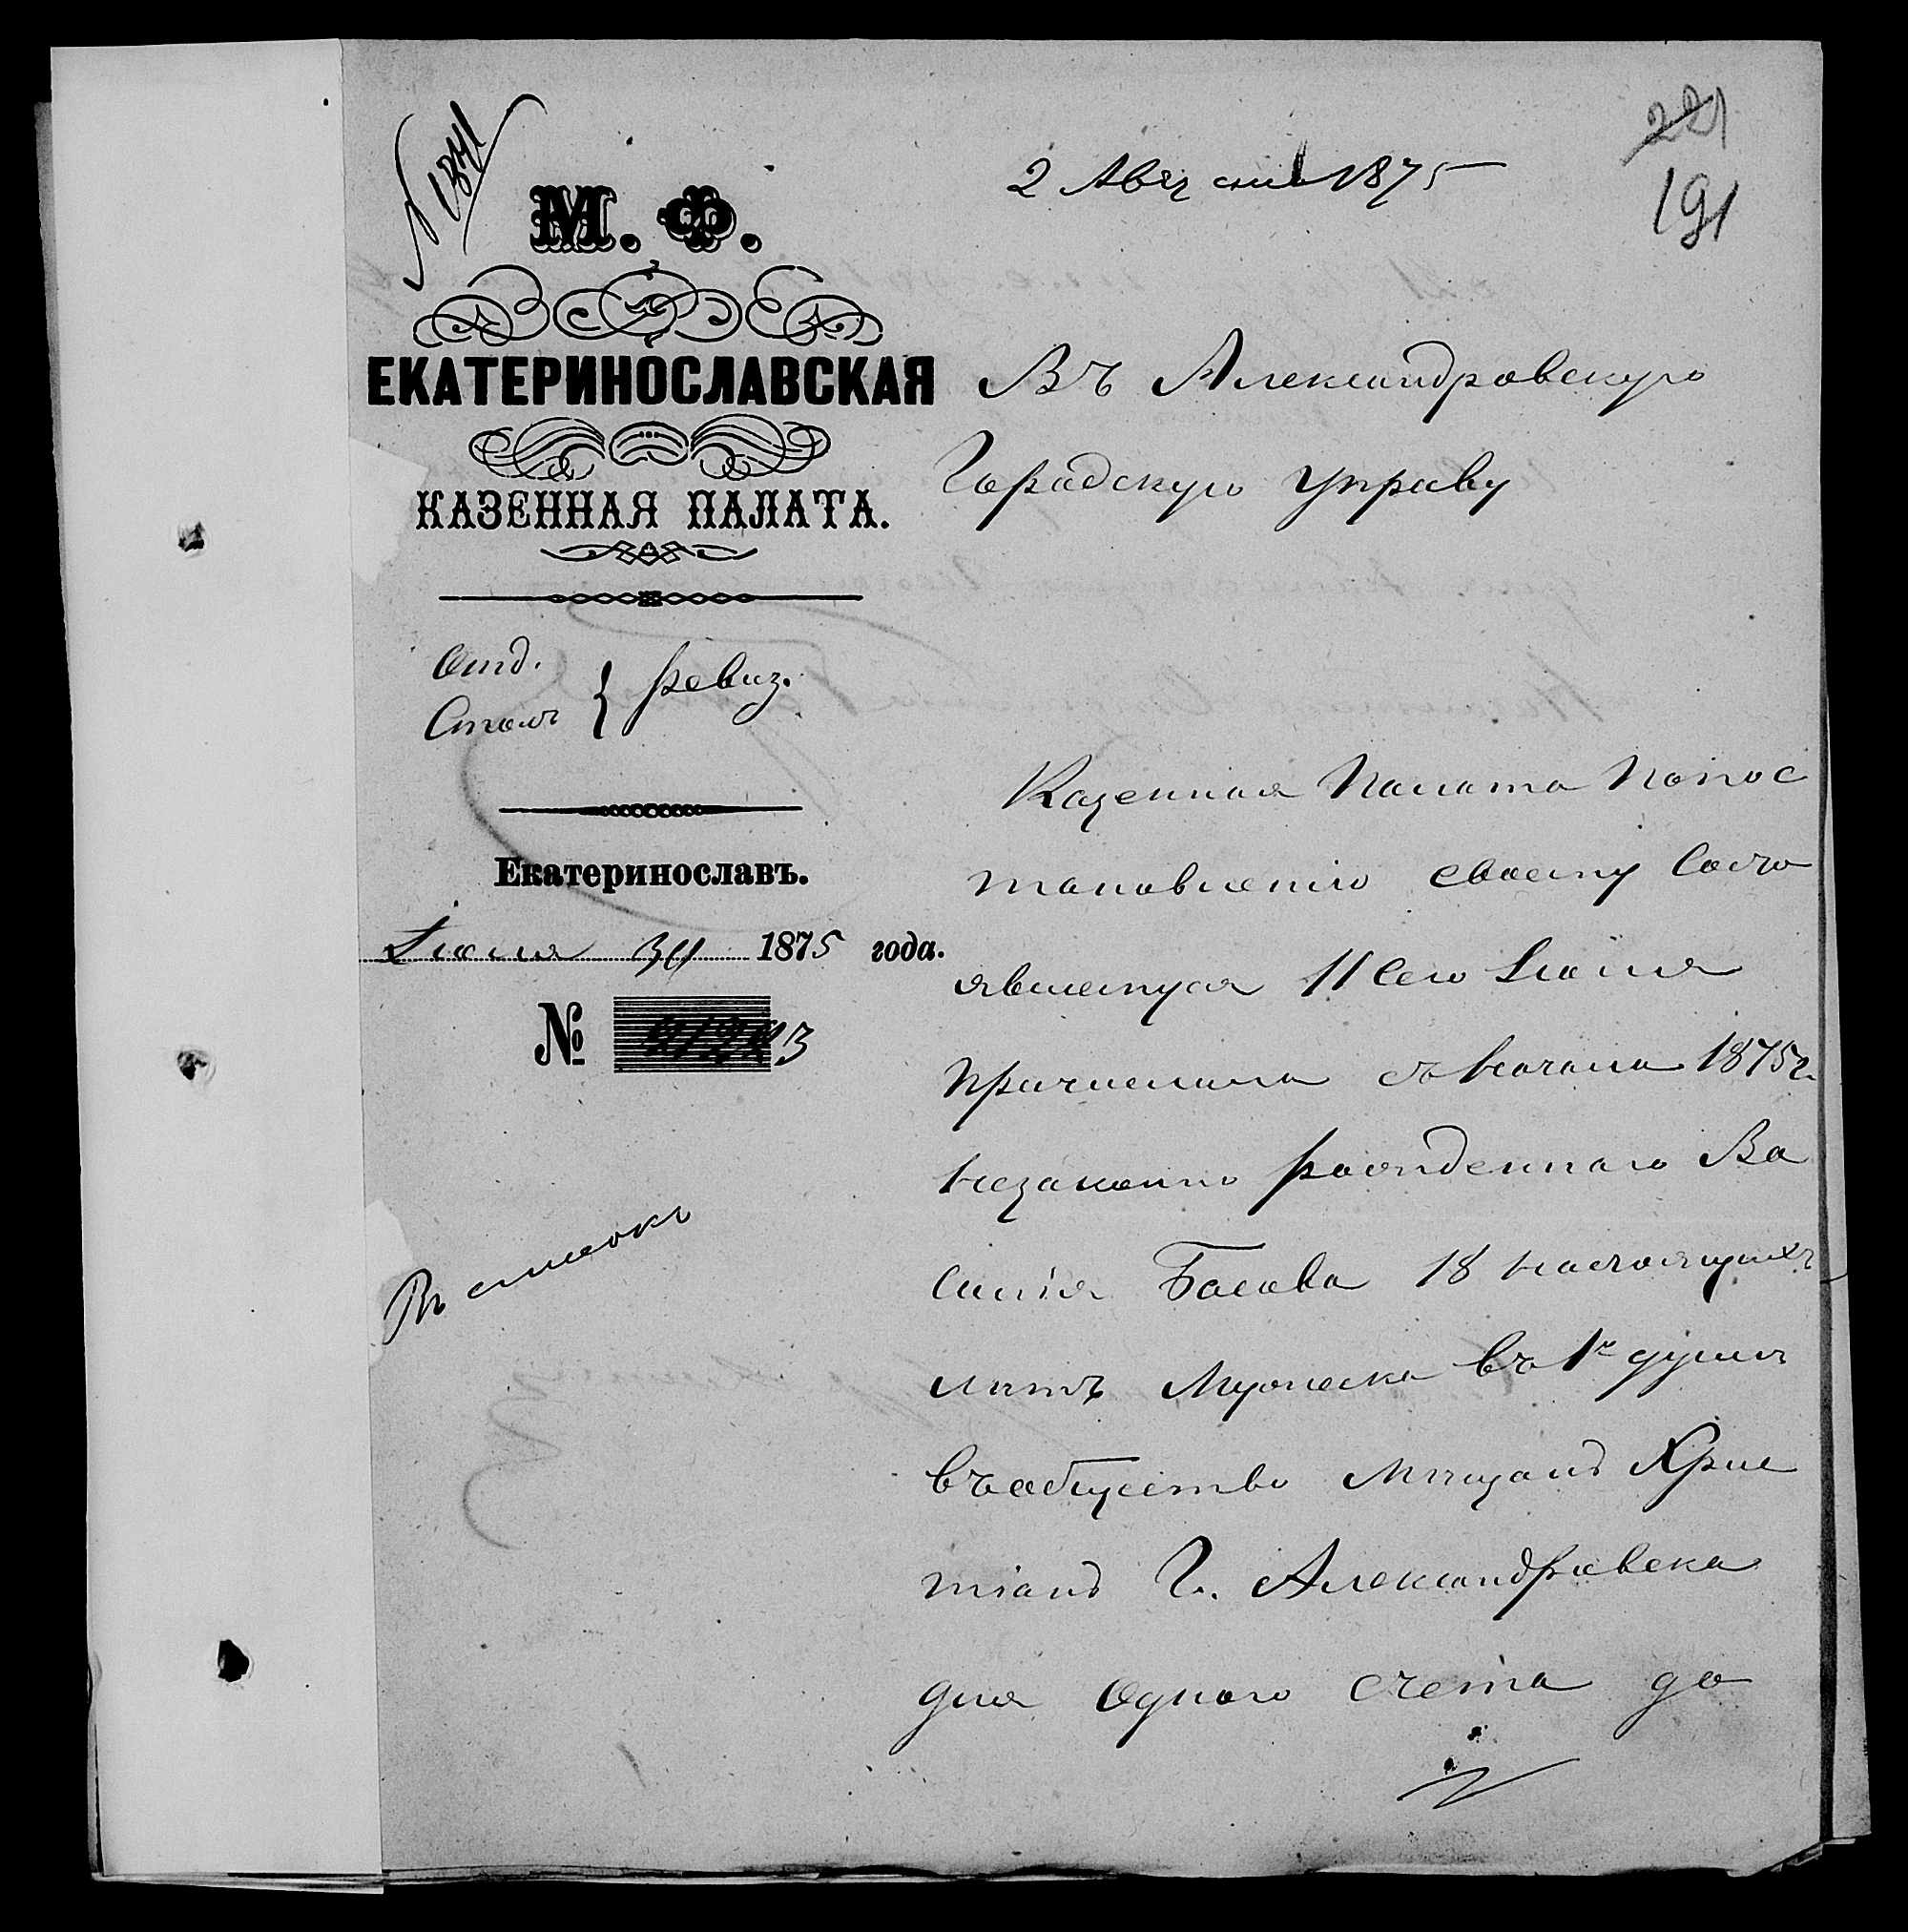 N 1841
2 Августа 1875
221
191
М. Ф.
ЕКАТЕРИНОСЛАВСКАЯ
КАЗЕННАЯ ПАЛАТА.
Отд.
Столъ } Ревиз.
Екатеринославъ.
Іюля 30 1875 года.
№
Въ списокъ
Въ Александровскую
Городскую Управу
Казенная Палата попос
тановленію своему Состо
явшемуся 11 сего Іюля
причислила съ начала 1875 г.
незаконно рожденнаго Ва
силія Басова 18 настоящихъ
лѣтъ Мужеска въ 1й душѣ
въ общество мѣщанъ Хрис
тіанъ Г. Александровска
для Одного счета до